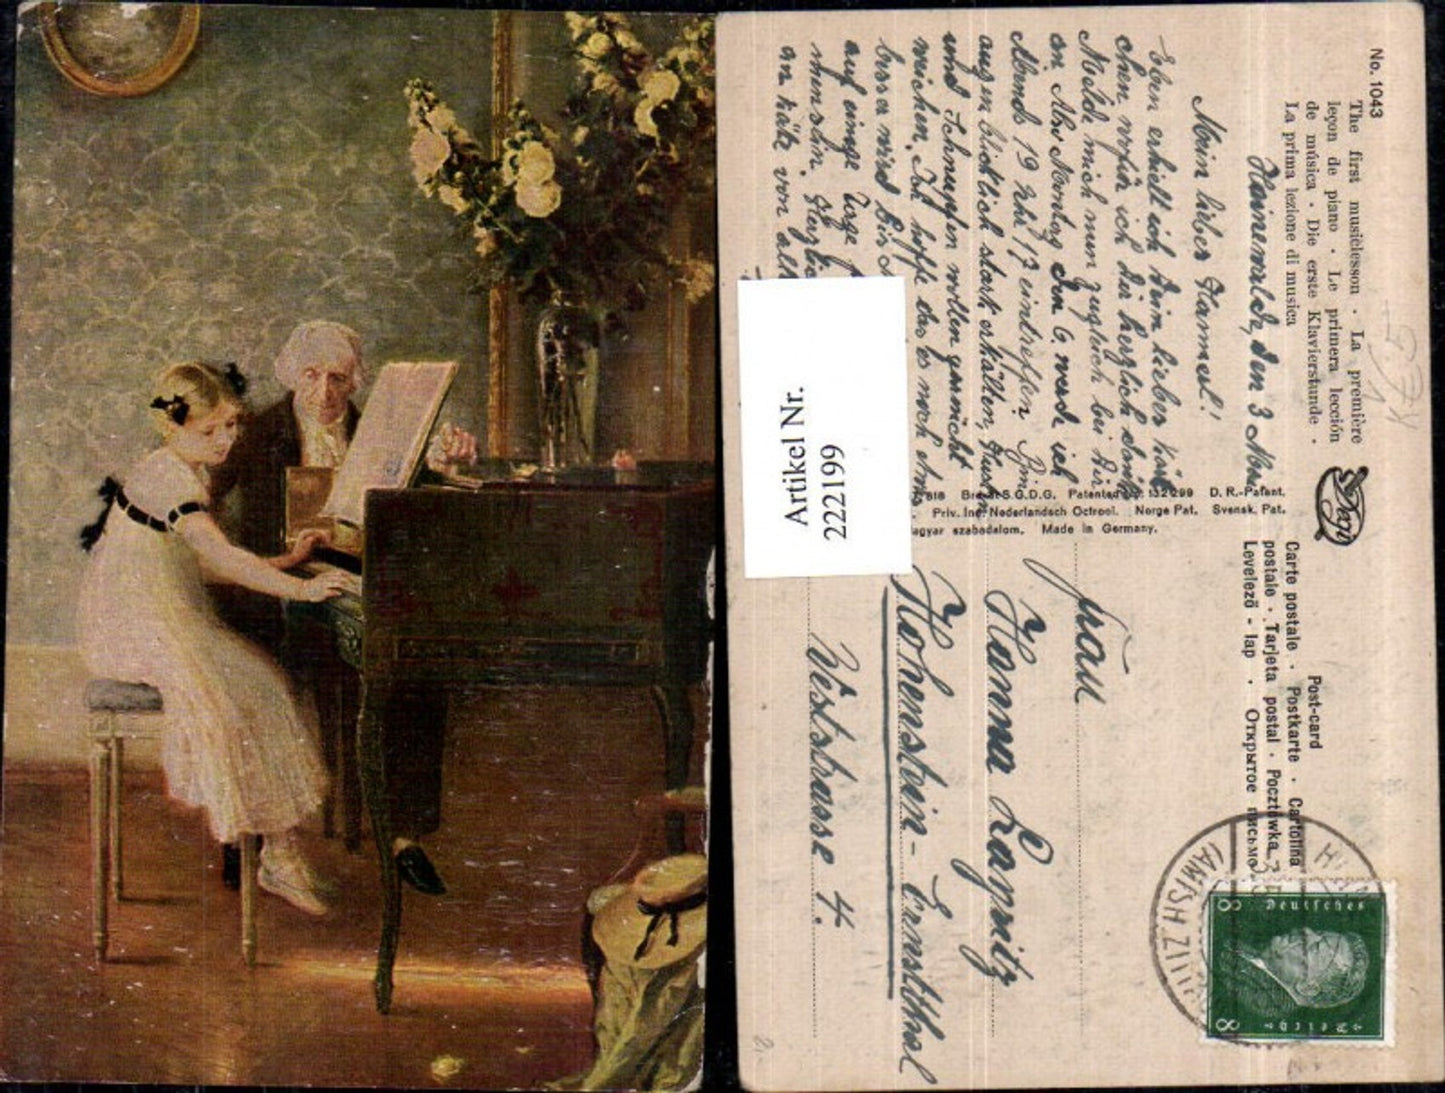 No. 1043
The first musiclesson · La première
leçon de piano · Le primera lección
de música · Die erste Klavierstunde ·
La prima lezione di musica
Hainewalde, den 3 Nov.
Mein lieber Hannerl!
Eben erhielt ich Dein liebes Kärt
chen wofür ich Dir herzlich danke
Melde mich nun zugleich bei Dir
an. Also Montag den 6 werd ich
Abends 19 Uhr 17 eintreffen. Bin
augenblicklich stark erkältet, Husten
und Schnupfen wollen garnicht
weichen. Ich hoffe das es noch etwas
besser wird bis
auf einige Tage
an käte von all
Artikel Nr.
2222199
818 Brevet S.G.D.G. Patented 132299 D. R.-Patent.
Priv. Ind. Nederlandsch Octrooi. Norge Pat. Svensk. Pat.
agyar szabadalom. Made in Germany.
Post-card
Carte postale · Postkarte · Cartolina
postale · Tarjeta postal · Pocztówka
Levelező - lap · Открытое письмо
Deutsches
Reich
8 8
(AMTSH ZI
Frau
Hanna Lagnitz
Hohenstein-Ernstthal
Weststrasse 4.